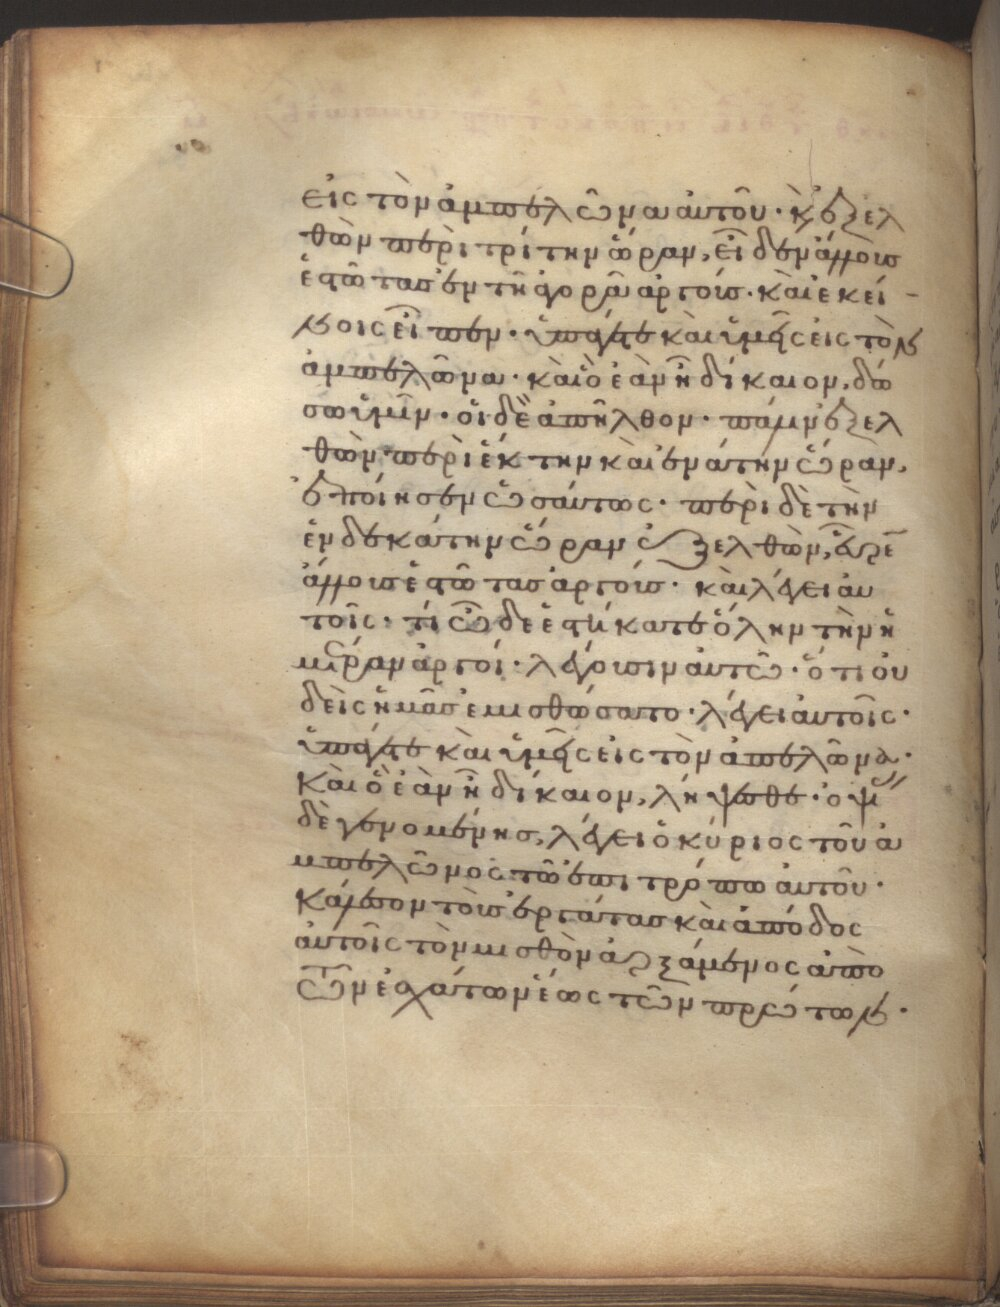 εἰς τὸν ἀμπελῶνα αὐτοῦ· κ̀ ἐξελ
θὼν περὶ τρίτην ὥραν, εἶδεν ἄλλους
ἑστῶτας ἐν τῆ ἀγορᾶ ἀργούς· καὶ ἐκεί
νοις εἶπεν· ὑπάγετε καὶ ὑμεῖς εἰς τὸν
ἀμπελῶνα· καὶ ὃ ἐὰν ῆ δίκαιον, δώ
σω ὑμῖν· οἱ δὲ ἀπῆλθον· πάλιν ἐξελ
θὼν περὶ ἕκτην καὶ ἐνάτην ὥραν,
ἐποίησεν ὡσαύτως· περὶ δὲ τὴν
ἑνδεκάτην ὥραν ἐξελθὼν, εὗρεν
ἄλλους ἑστῶτας ἀργούς· καὶ λέγει αὐ
τοῖς· τί ὧδε ἑστήκατε ὅλην τὴν ἡ
μέραν ἀργοί· λέγουσιν αὐτῶ· ὅτι οὐ
δεὶς ἡμᾶς ἐμισθώσατο· λέγει αὐτοῖς·
ὑπάγετε καὶ ὑμεῖς εἰς τὸν ἀπελῶνα·
καὶ ὃ ἐὰν ῆ δίκαιον, λήψεσθε· ὀψί
δὲ γενομένης, λέγει ὁ κύριος τοῦ ἀ
μπελῶνος τῶ ἐπιτρόπω αὐτοῦ·
κάλεσον τοὺς ἐργάτας καὶ ἀπόδος
αὐτοῖς τὸν μισθὸν ἀρξάμενος ἀπὸ
τῶν ἐσχάτων ἕως τῶν πρώτων·